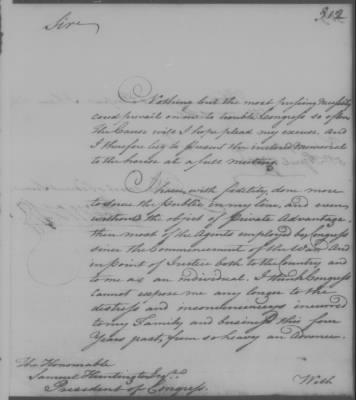 312
Sire
Nothing but the most pressing necessity
coud prevail on me to trouble Congress so often
The Cause will I hope plead my excuse. And
I therefore beg to present the inclosed Memorial
to the house at a full meeting
I have, with fidelity, done more
to serve the public in my line, and even
without the object of Private Advantage
then most of the Agents employed by Congress
since the Commencement of the War. And
in point of Justice both to the Country and
to me as an individual. I think Congress
cannot expose me any longer to the
distress and inconveniencys incurred
to my Family and business this four
Years past, from so heavy an Advance.
The Honorable
Samuel Huntington Esqr.
President of Congress.
With